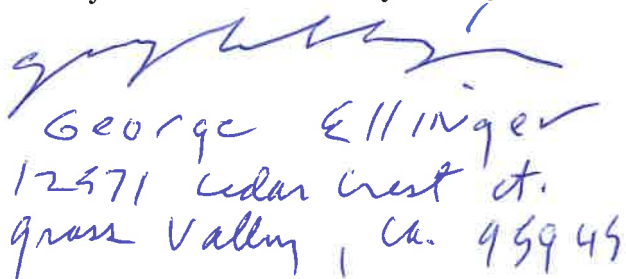 George Ellinger
12571 Cedar Crest ct.
Grass Valley, Ca. 95945